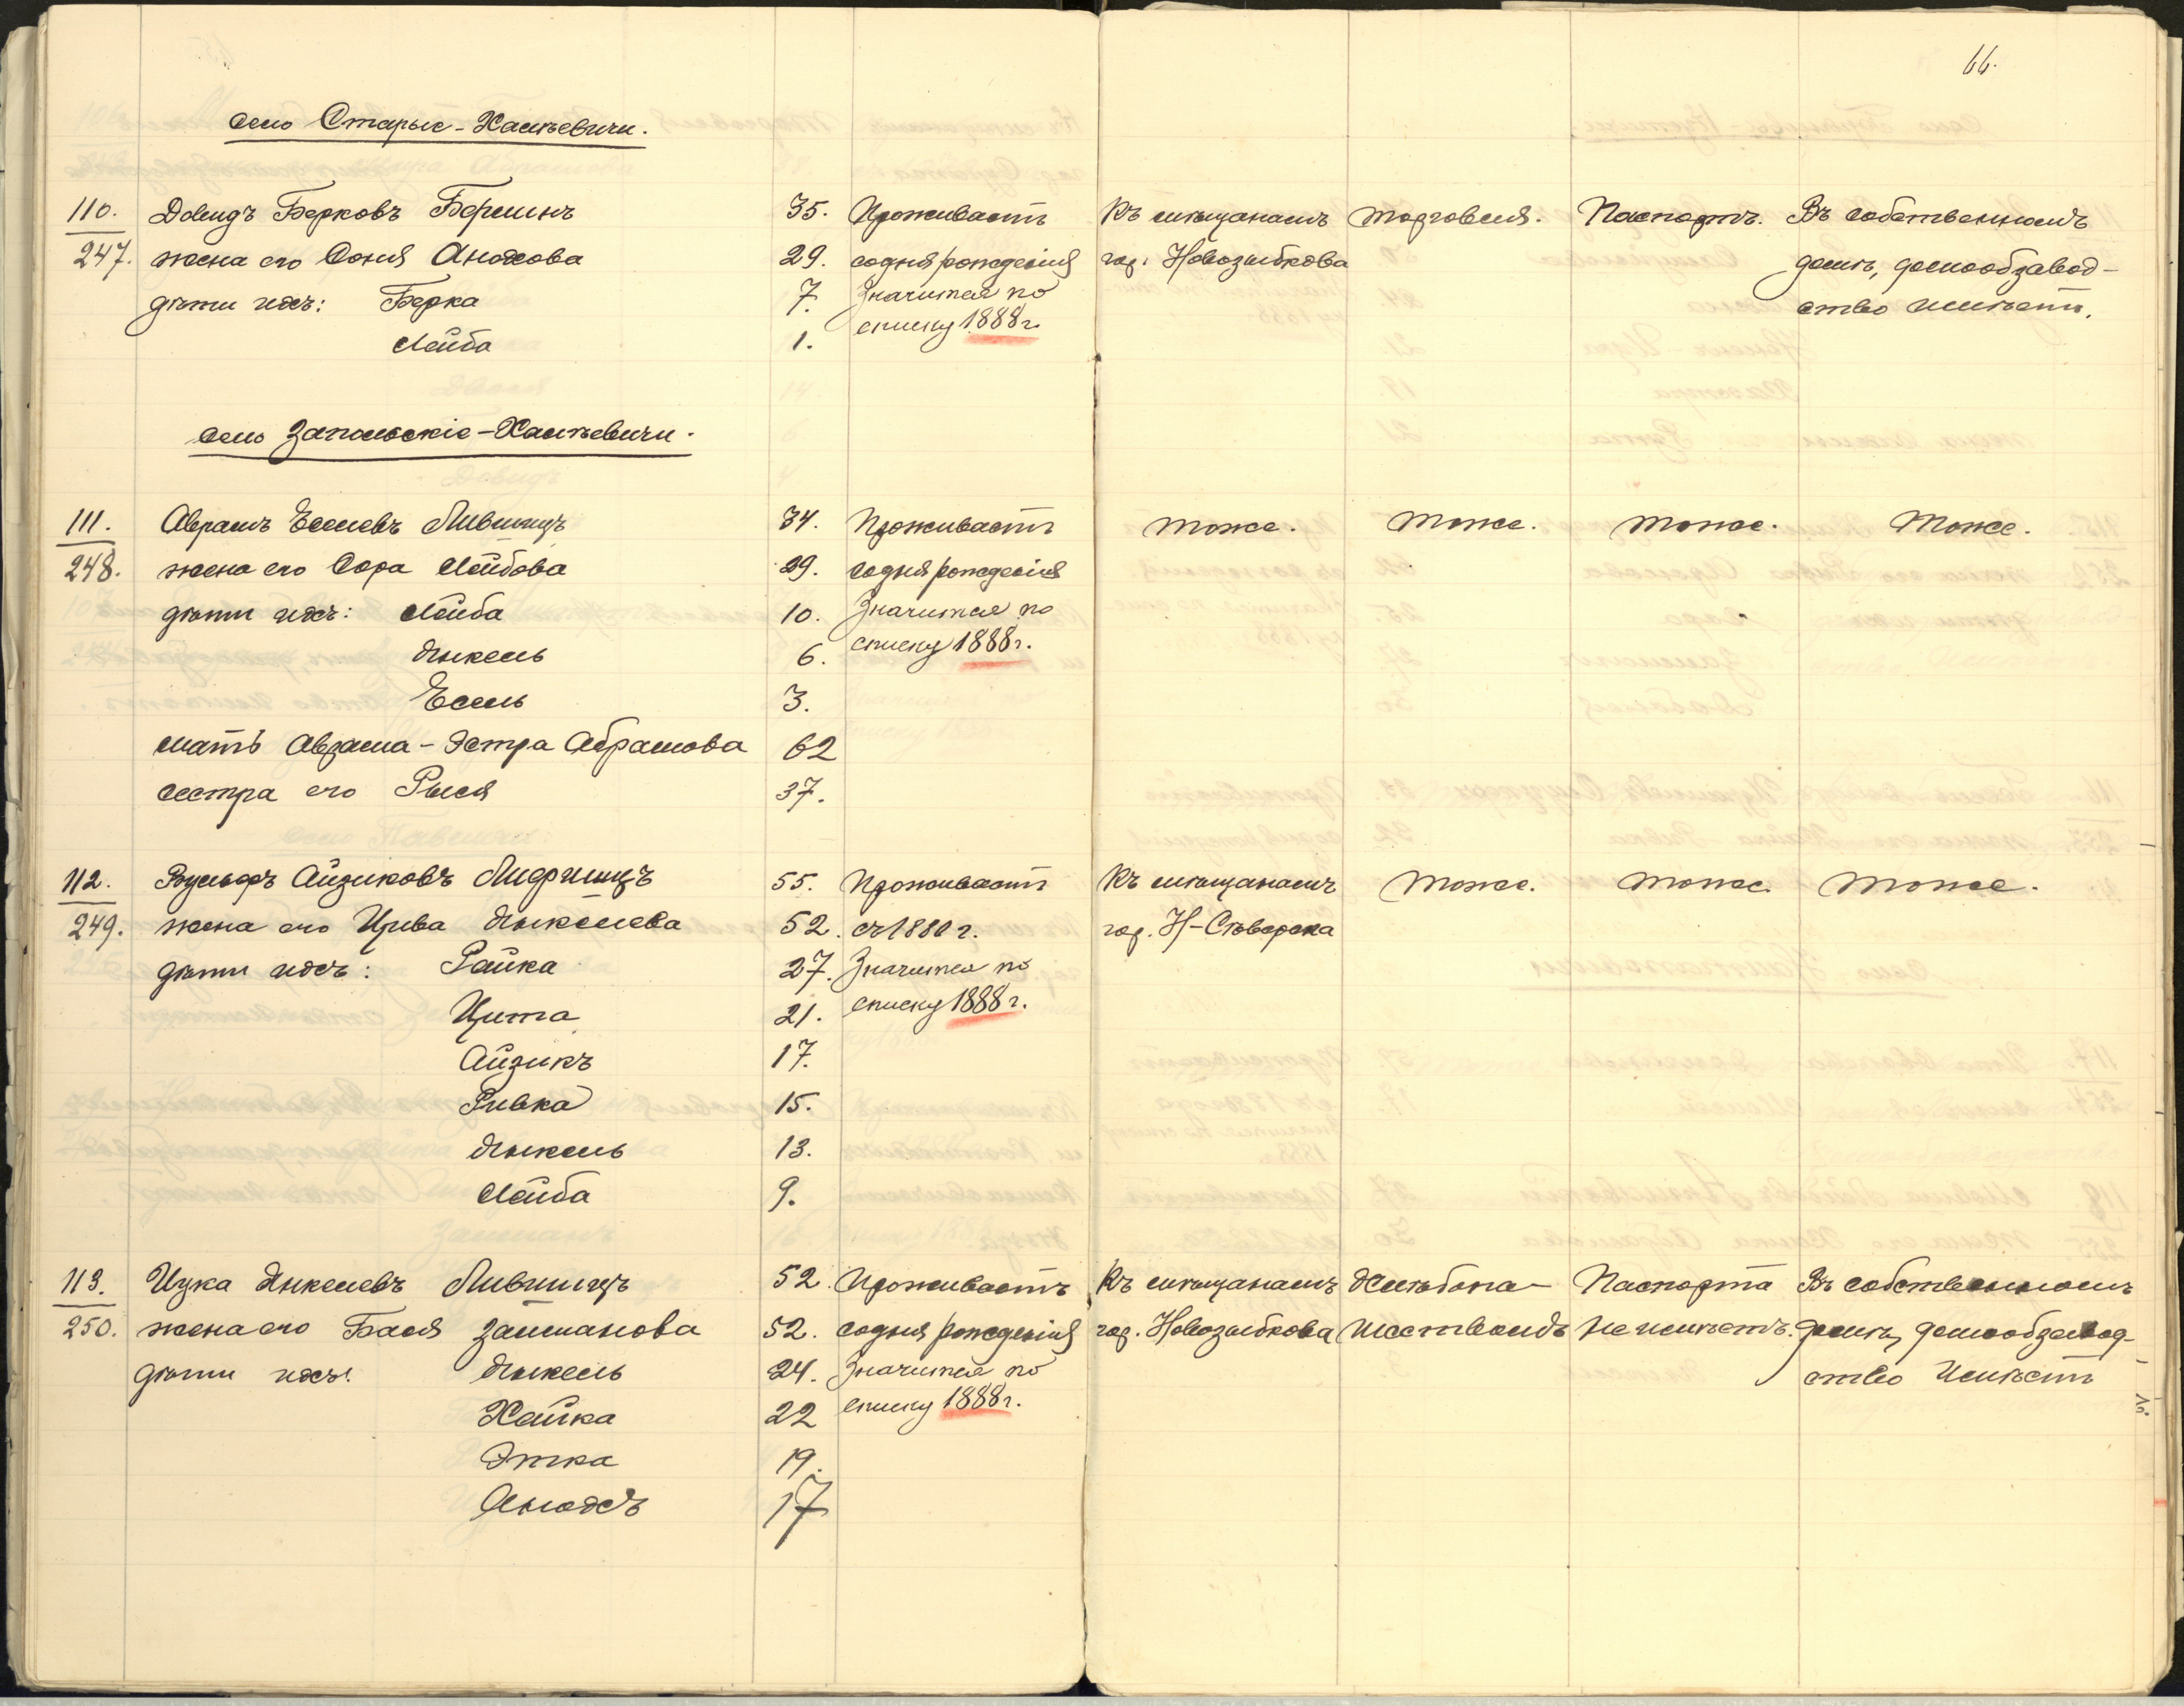 66.
село Старые-Халѣевичи.
110. Довидъ Берковъ Берлинъ 35. Проживаетъ Къ мѣщанамъ торговля. Паспортъ. Въ собственномъ
247. жена его Соня Анохова 29. содня рожденія гор. Новозыбкова домѣ, домообзавод-
дѣти ихъ: Берка 7. Значится по ство имѣетъ.
Лейба 1. списку 1888 г.
село Запольскіе-Халѣевичи.
111. Аврамъ Еселевъ Лившицъ 34. Проживаетъ тоже. тоже. тоже. тоже.
248. жена его Сора Лейбова 29. содня рожденія
дѣти ихъ: Лейба 10. Значится по
Янкель 6. списку 1888 г.
Есель 3.
мать Аврама - Эстра Абрамова 62
сестра его Рыся 37.
112. Вульфъ Айзиковъ Лифшицъ 55. Проживаетъ Къ мѣщанамъ тоже. тоже. тоже.
249. жена его Цива Янкелева 52. съ 1880 г. гор. Н-Сѣверска
дѣти ихъ: Райка 27. Значится по
Цита 21. списку 1888 г.
Айзикъ 17.
Ривка 15.
Янкель 13.
Лейба 9.
113. Ицка Янкелевъ Лившицъ 52 Проживаетъ Къ мѣщанамъ Хлѣбопа- Паспорта Въ собственномъ
250. жена его Бася Залманова 52. содня рожденія гор. Новозыбкова шествомъ не имѣетъ. домѣ, домообзавод-
дѣти ихъ: Янкель 24. Значится по ство имѣетъ
Хайка 22 списку 1888 г.
Этка 19.
Янохъ 17